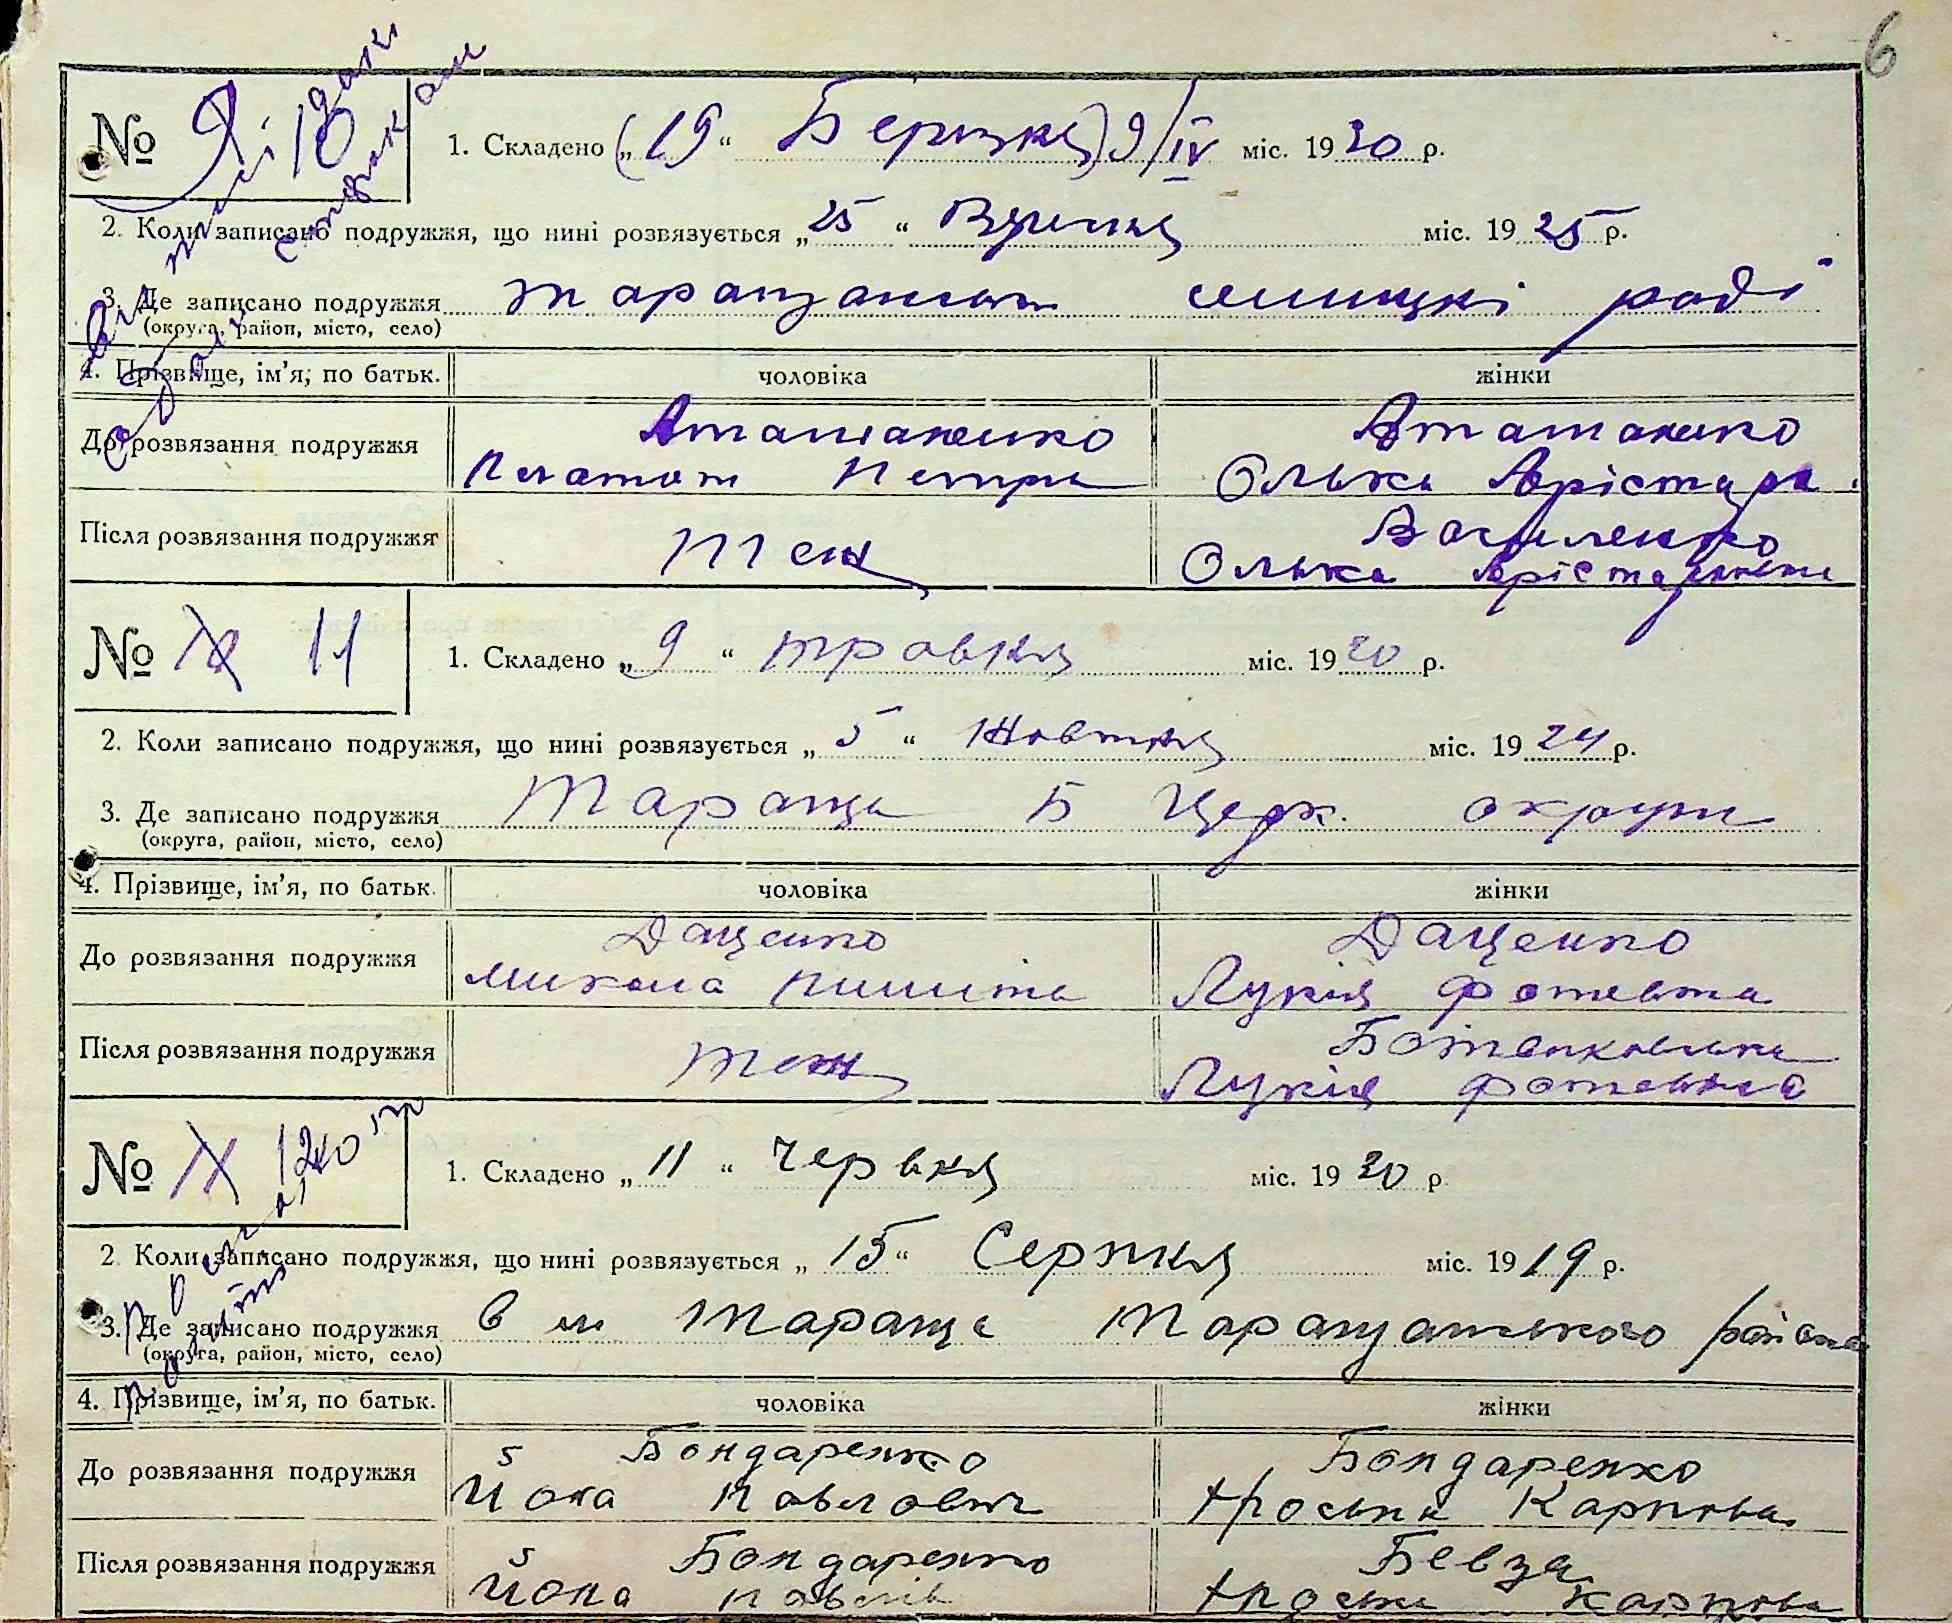 6
№ 10
1. Складено („ 19 “ Березня) 9/IV міс. 1930 р.
2. Коли записано подружжя, що нині розвязується „ 25 “ Вересня міс. 1925 р.
3. Де записано подружжя Таращанські селищні раді
(округа, район, місто, село)
4. Прізвище, ім’я, по батьк. чоловіка жінки
До розвязання подружжя Атаманенко Атаманенко
Платон Петров Олька Арістарх.
Після розвязання подружжя Теж Василенко
Олька Арістархівна
№ 10 11
1. Складено „ 9 “ травня міс. 1930 р.
2. Коли записано подружжя, що нині розвязується „ 5 “ Жовтня міс. 1924 р.
3. Де записано подружжя Тараща Б Церк. округи
(округа, район, місто, село)
4. Прізвище, ім’я, по батьк. чоловіка жінки
До розвязання подружжя Даценко Даценко
Микола Лукія Фотевна
Після розвязання подружжя Теж
Лукія Фотевна
№ 11 12
1. Складено „ 11 “ Червня міс. 1930 р.
2 Коли записано подружжя, що нині розвязується „ 15 “ Серпня міс. 1919 р.
3. Де записано подружжя в м Тараща Таращанського района
(округа, район, місто, село)
4. Прізвище, ім’я, по батьк. чоловіка жінки
До розвязання подружжя Бондаренко Бондаренко
Йона Павлович Фроська Карпова
Після розвязання подружжя Бондаренко Бевза
Йона Павлів Фроська Карпова